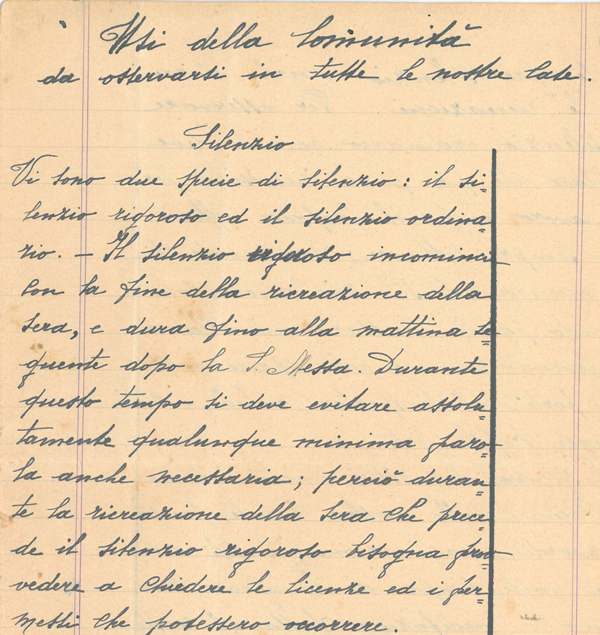 Usi della Comunità
da osservarsi in tutte le nostre Case.
Silenzio
Vi sono due specie di silenzio: il si=
lenzio rigoroso ed il silenzio ordina=
rio. – Il silenzio rigoroso incomincia
con la fine della ricreazione della
sera, e dura fino alla mattina se=
guente dopo la S. Messa. Durante
questo tempo si deve evitare assolu=
tamente qualunque minima paro=
la anche necessaria; perciò duran=
te la ricreazione della sera che prece=
de il silenzio rigoroso bisogna prov=
vedere a chiedere le licenze ed i per=
messi che potessero occorrere.